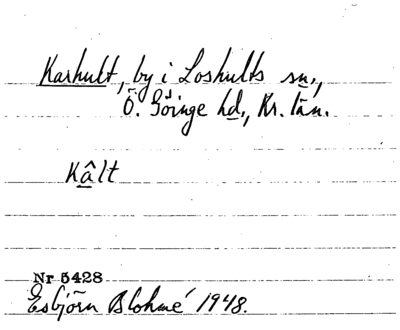 Karhult, by i Loshults sn.,
Ö. Göinge hd., Kr. län.
Kâlt
Nr 5428
Esbjörn Blohmé 1948.